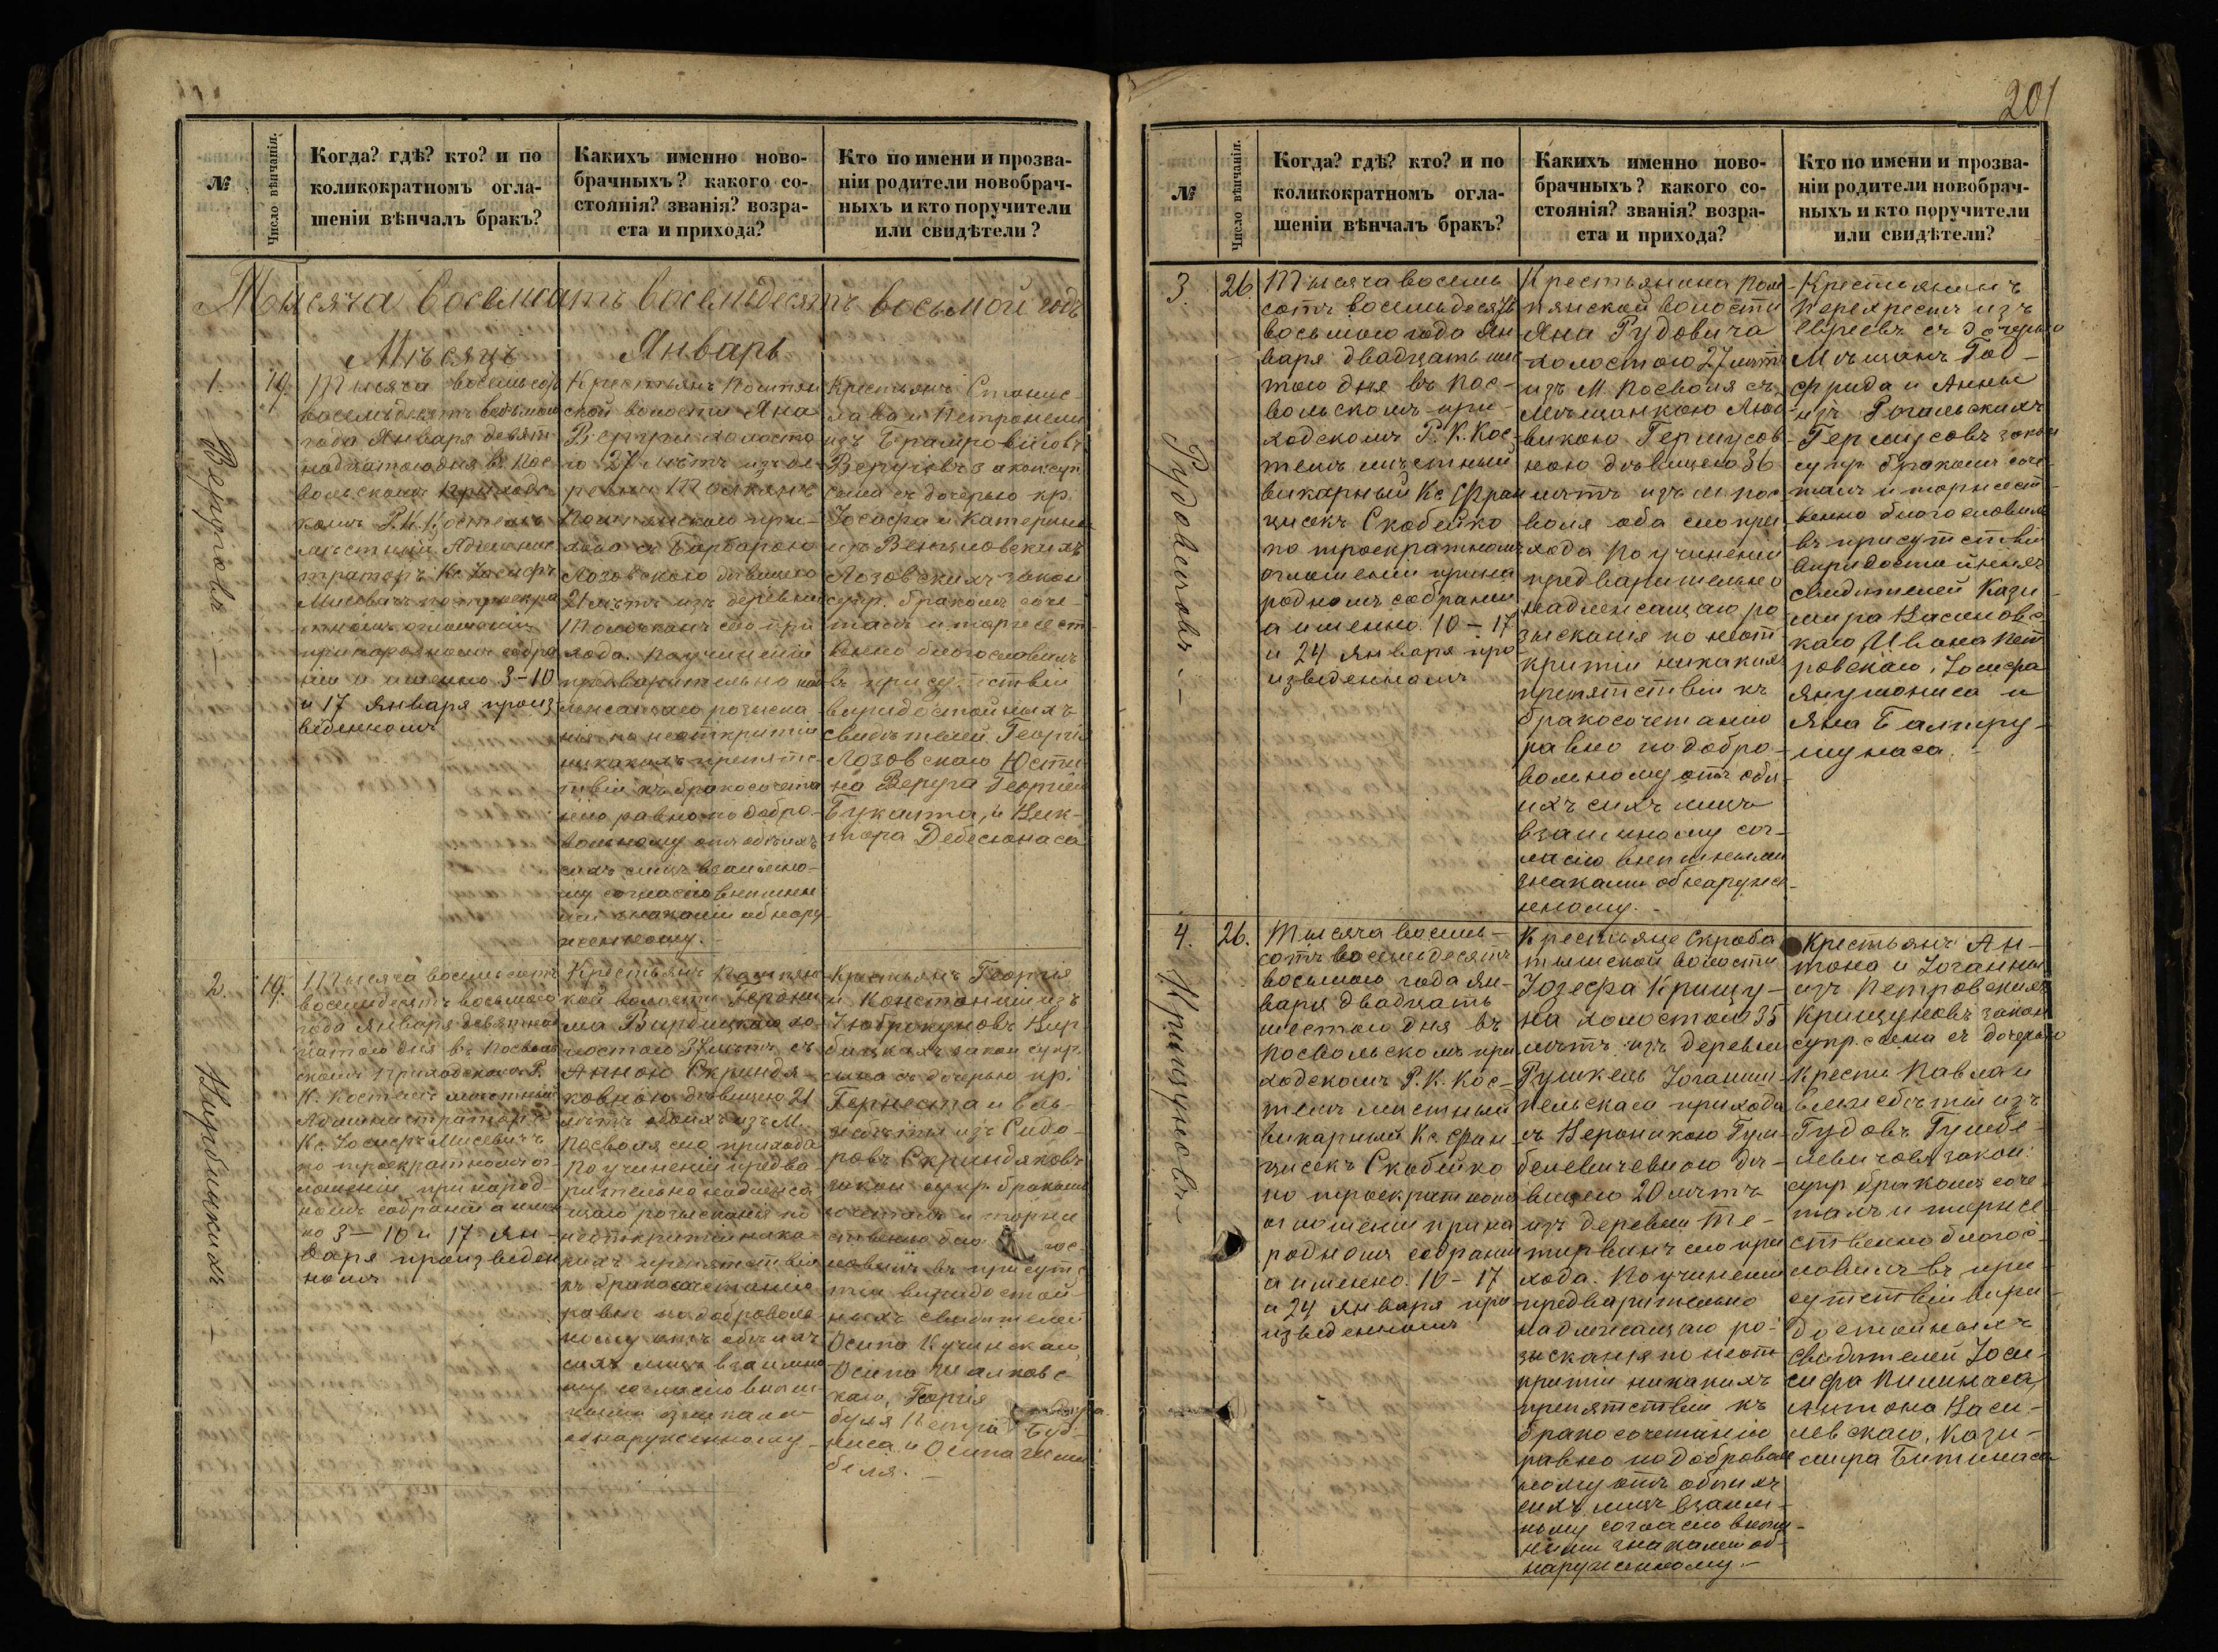 201
№
Число вѣнчанія.
Когда? гдѣ? кто? и по
коликократномъ огла-
шеніи вѣнчалъ бракъ?
Какихъ именно ново-
брачныхъ? какого со-
стоянія? званія? возра-
ста и прихода?
Кто по имени и прозва-
ніи родители новобрач-
ныхъ и кто поручители
или свидѣтели?
Тысяча восемсотъ восемьдесятъ восьмой годъ
Мѣсяцъ Январь
1.
19.
Тысяча восемьсотъ
восемьдесятъ восьмаго
года Января девят
надцатаго дня въ Пос
вольскомъ Приходс
комъ Р. К. Костелѣ
мѣстный Админис
траторъ Кс Іосифъ
Мисевичъ по троекра
тномъ оглашеніи
при народномъ собра
ніи а именно 3-10
и 17 Января произ
веденномъ
Крестьянъ Помпян
ской волости Яна
холоста
го 27 лѣтъ изъ де
ревни
Помпянскаго при-
хода съ Барбарою
Лозовскою дѣвицею
21 лѣтъ изъ деревни
сего при
хода. По учиненіи
предварительно над
лежащаго розыска
нія по неоткрытіи
никакихъ препятс
твій къ бракосочета
нію равно по добро-
вольному отъ обѣихъ
сихъ лицъ взаимно-
му согласію внѣшни
ми знаками обнару
женному.
Крестьянъ Станис-
лава и Петронели
изъ
закон суп
сына съ дочерью кр.
Іосафа и Катерины
изъ
Лозовскихъ закон
супр. бракомъ соче-
талъ и торжест
венно благословилъ
въ присутствіи
вѣридостойныхъ
свидѣтелей Георгія
Лозовскаго Юсти
на Георгія
и Вик-
тора
2.
19.
Тысяча восемьсотъ
восемьдесятъ восьмаго
года Января девятнад
цатаго дня въ Посволь
скомъ Приходскомъ Р.
К. Костелѣ мѣстный
Администраторъ
Кс. Іосифъ Мисевичъ
по троекратномъ ог
лашеніи при народ-
номъ собраніи а имен
но 3-10 и 17 Ян-
варя произведен
номъ
Крестьянъ Помпянс
кой волости Герони
ма Вирбицкаго хо
лостаго 37 лѣтъ съ
Анною Скриндя-
ковною дѣвицею 21
лѣтъ обоихъ изъ М.
Посволя сего прихода
По учиненіи предва
рительно надлежа
щаго розысканія по
неоткрытіи ника
кихъ препятствій
къ бракосочетанію
равно по доброволь
ному отъ обѣихъ
сихъ лицъ взаимно
му согласію внѣш-
ними знаками
обнаруженному
Крестьянъ Георгія
и Констанціи изъ
Вир
бицкихъ закон супр.
сына съ дочерью кр.
и Ель-
збѣты изъ Сидо-
ровъ Скриндяковъ
закон супр. бракомъ
сочеталъ и торже
ственно благос-
ловилъ въ присутс
твіи вѣридостой-
ныхъ свидѣтелей
Осипа Кучинскаго
Осипа Шалковс-
каго, Георгія
Петра Буд-
и Осипа
3.
26.
Рудовичовъ.-
Тысяча восемь
сотъ восемьдесятъ
восьмаго года Ян
варя двадцать шес
таго дня въ Пос-
вольскомъ при-
ходскомъ Р. К. Кос-
телѣ мѣстный
викарный Кс Фран
цискъ Скобейко
по троекратномъ
оглашеніи при на
родномъ собраніи
а именно. 10-17
и 24 Января про
изведенномъ
Крестьянина Пом
пянской волости
Яна Рудовича
холостаго 27 лѣтъ
изъ М. Посволя съ
Мѣщанкою Люд
викою Гермусов
ною дѣвицею 36
лѣтъ изъ м пос
воля оба сего при
хода По учиненіи
предварительно
надлежащаго ро
зысканія по неот
крытіи никакихъ
препятствій къ
бракосочетанію
равно по добро-
вольному отъ обѣ-
ихъ сихъ лицъ
взаимному сог-
ласію внѣшними
знаками обнаруж-
енному.-
Крестьянинъ
Перекрестъ изъ
евреевъ съ дочерью
Мѣщанъ Год-
фрида и Анны
изъ
Гермусовъ закон
супр бракомъ соче
талъ и торжест
венно благословилъ
въ присутствіи
вѣридостойныхъ
свидѣтелей Кази
мира Васиновс
каго, Ивана Пет
ровскаго, Іосифа
Янушониса и
Яна Балтру-
шунаса.-
4.
26.
Крищуновъ-
Тысяча восемь-
сотъ восемьдесятъ
восьмаго года Ян-
варя двадцать
шестаго дня въ
Посвольскомъ при
ходскомъ Р. К. Кос-
телѣ мѣстный
викарный Кс Фран
цискъ Скобейко
по троекратномъ
оглашеніи при на
родномъ собраніи
а именно. 10-17
и 24 Января про
изведенномъ
Крестьяне Скроба
тышской волости
Іозефа Крищу-
на холостаго 35
лѣтъ изъ деревни
Іоганиш-
кельскаго прихода
съ Вероникою Гум
белевичевною дѣ-
вицею 20 лѣтъ
изъ деревни Те-
сего при
хода. По учиненіи
предварительно
надлежащаго ро-
зысканія по неот
крытіи никакихъ
препятствій къ
бракосочетанію
равно по доброволь
ному отъ обѣихъ
сихъ лицъ взаим-
ному согласію внѣш-
ними знаками об-
наруженному.-
Крестьянъ Ан-
тона и Іоганны
изъ Петровскихъ
Крищуновъ закон
супр. сына съ дочерью
Крестьян Павла и
Елисебѣты изъ
Гудовъ Гумбе-
левичовъ закон.
супр. бракомъ соче
талъ и торже
ственно благос-
ловилъ въ при
сутствіи вѣри
достойныхъ
свидѣтелей Іоси
сифа
Антона Васи-
левскаго, Кази-
мира Битинаса